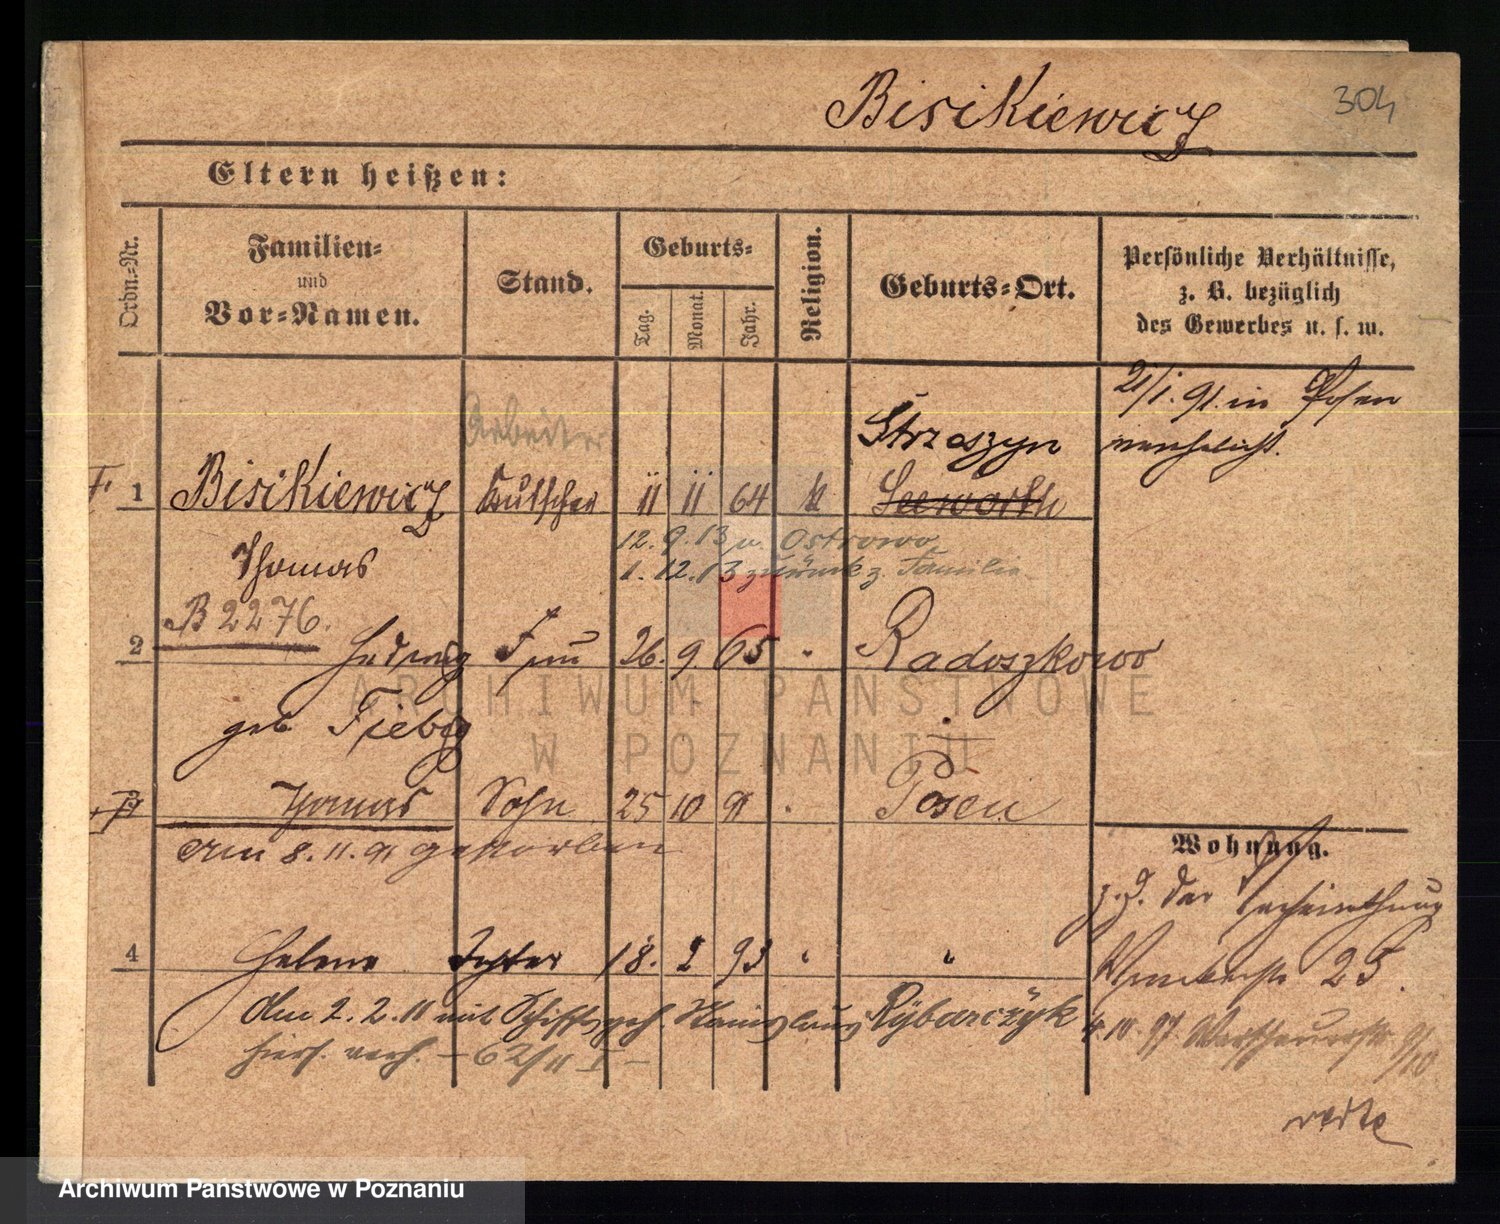 304
Bisikiewicz
Eltern heißen:
Ordn.-Nr.
Familien-
und
Vor-Namen.
Stand.
Geburts-
Tag.
Monat.
Jahr.
Religion.
Geburts-Ort.
Persönliche Verhältnisse,
z. B. bezüglich
des Gewerbes u. s. w.
21/1. 91. in Posen
verehelicht.
Arbeiter
Strzeszyn
1 Bisikiewicz Kutscher 11 11 64 k Seeworth
Thomas
12. 9. 13 n. Ostrowo
1. 12. 13 zurück z. Familie
B 2276.
2 Hedwig Frau 26. 9 65 " Radoszkowo
geb.
Thomas Sohn 25 10 91 " Posen
am 8. 11. 91 gestorben
Wohnung.
z. Z. der
4 Helene Tochter 18. 2 93 " "
25.
Am 2. 2. 11 mit Schiffsgeh. Stanislaus Rybarczyk
hiers. verh. – 62/11 I –
4. 10 97 9/10
ARCHIWUM PAŃSTWOWE
W POZNANIU
Archiwum Państwowe w Poznaniu